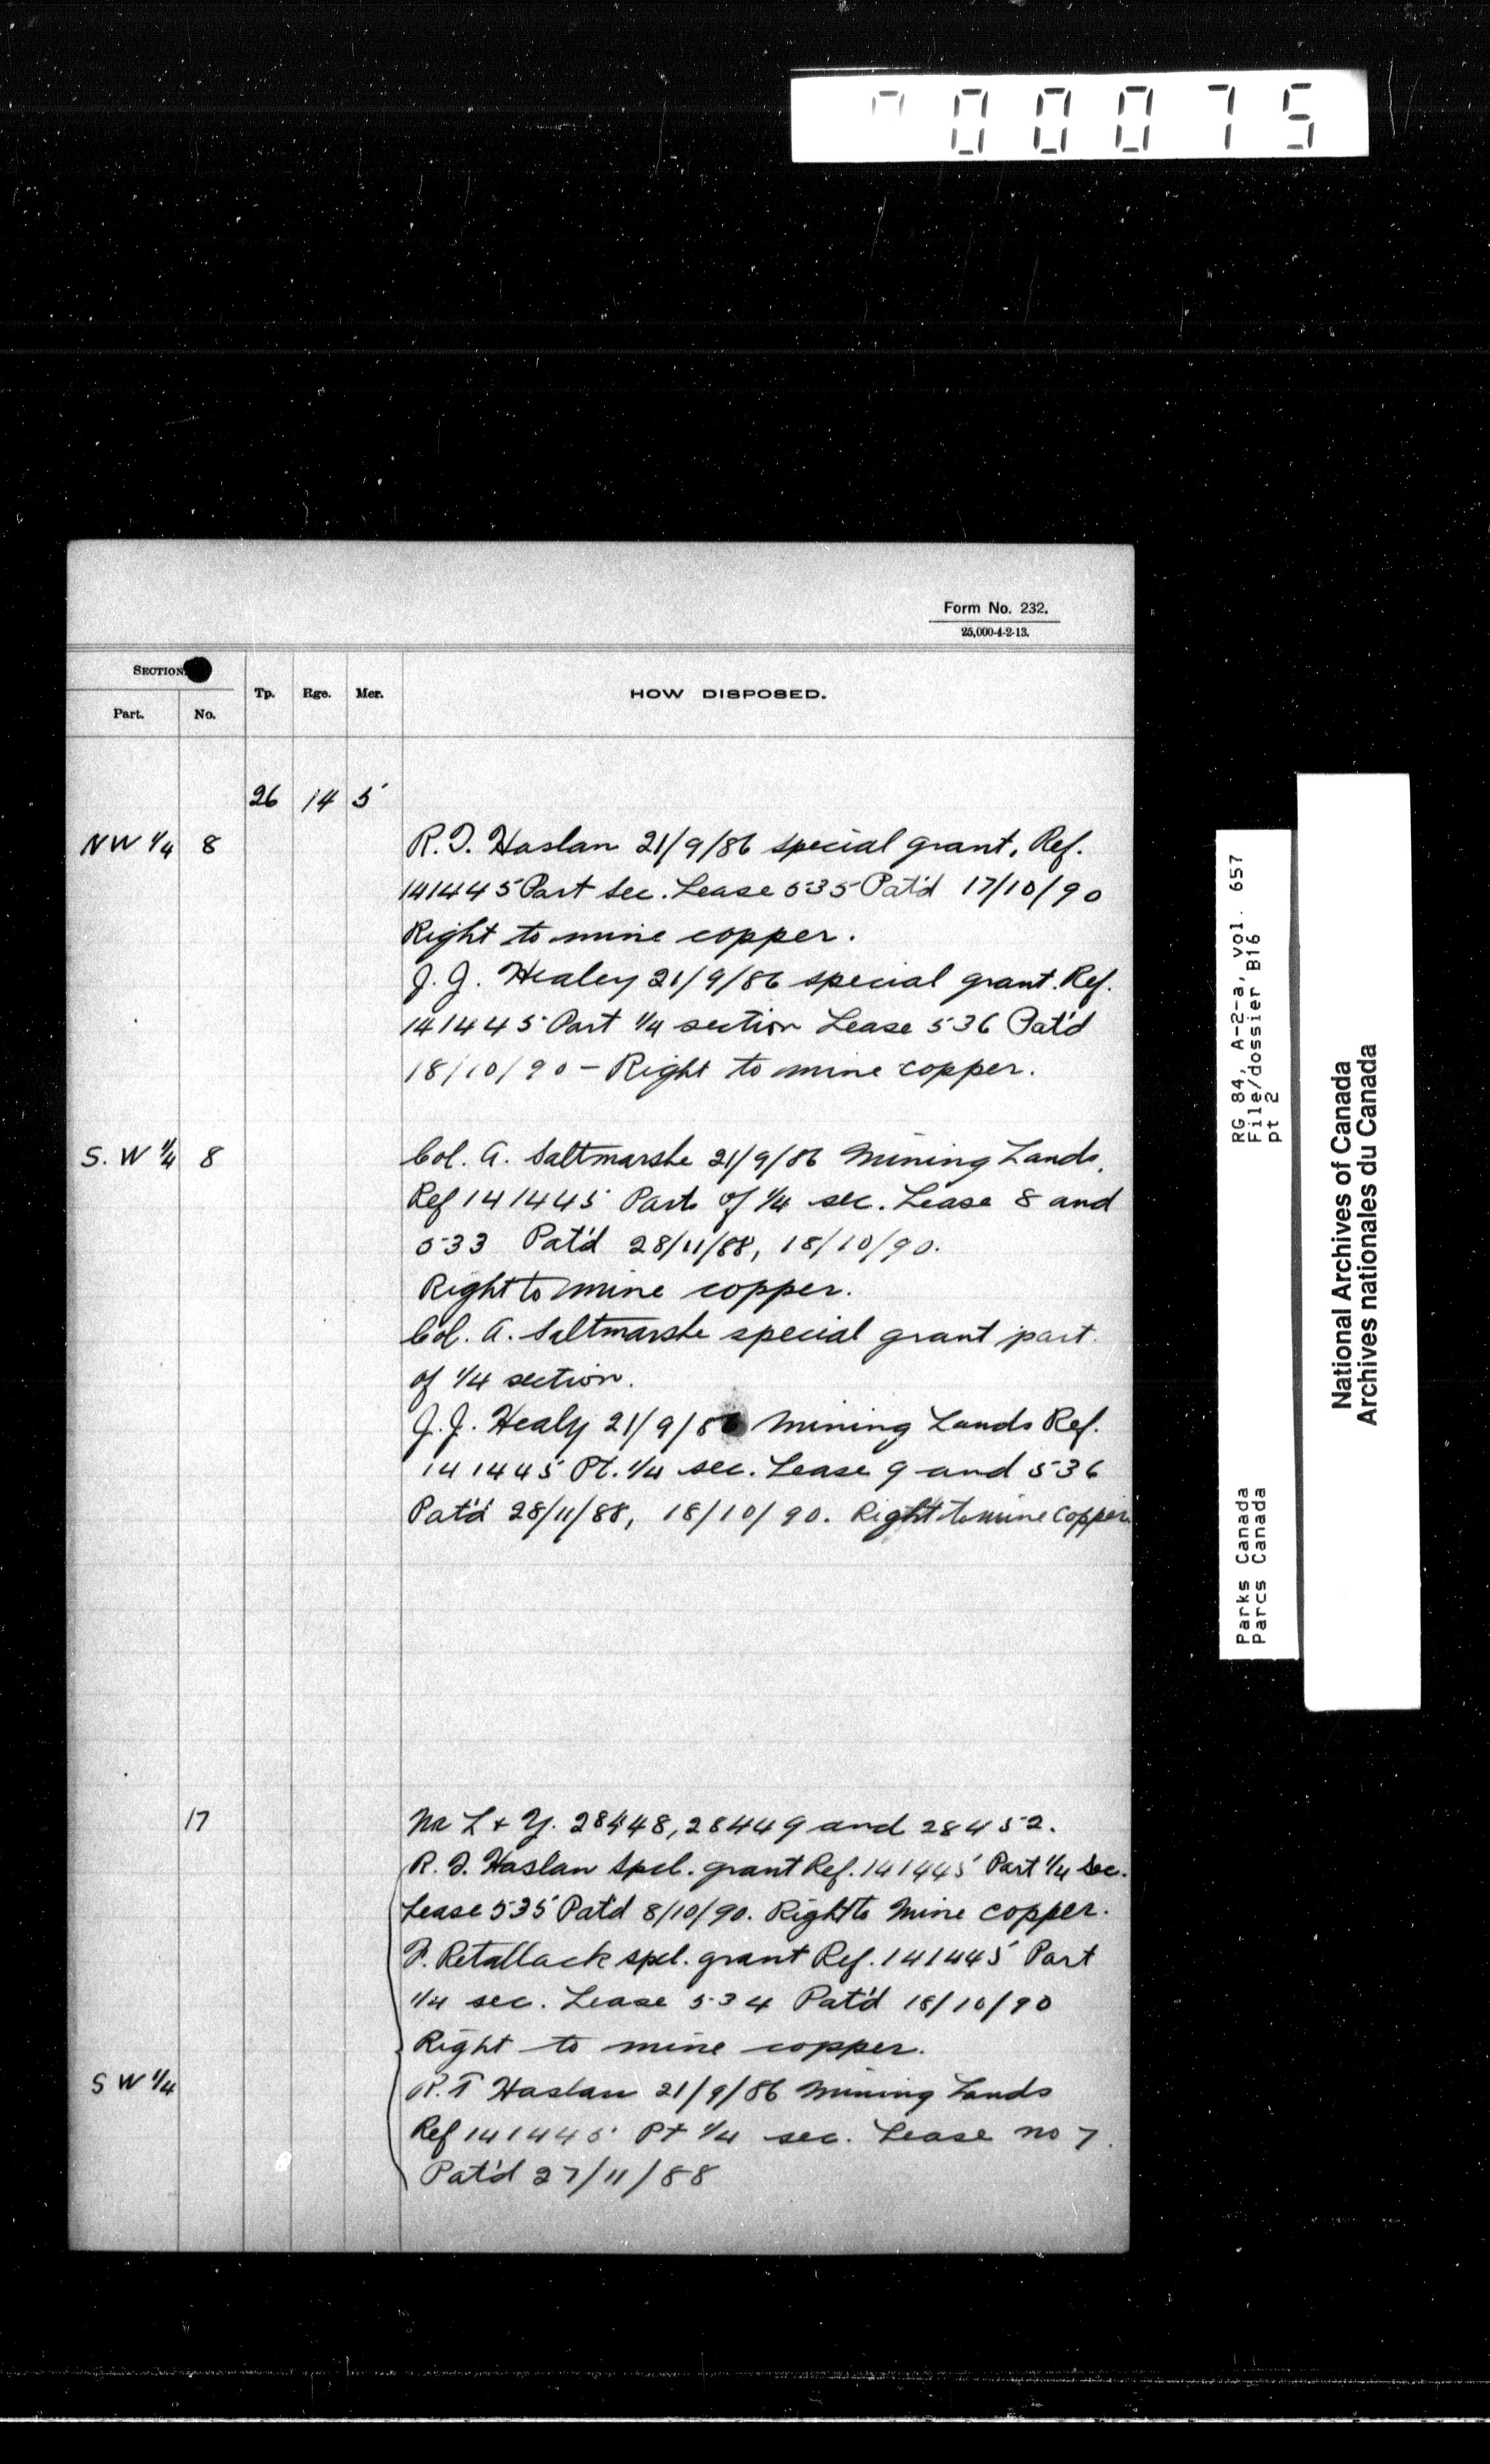 00075
Form No. 232.
25,000-4-2-13.
SECTION
Part. No. Tp. Rge. Mer. HOW DISPOSED.
26 14 5
NW 1/4 8 R.T. Haslan 21/9/86 special grant, Ref.
141445 Part Sec. Lease 535 Pat'd 17/10/90
Right to mine copper.
J. J. Healey 21/9/86 special grant. Ref.
141445 Part 1/4 section Lease 536 Pat'd
18/10/90 - Right to mine copper.
S. W 1/4 8 Col. A. Saltmarshe 21/9/86 Mining Lands.
Ref 141445 Part of 1/4 sec. Lease 8 and
533 Pat'd 28/11/88, 18/10/90.
Right to mine copper.
Col. A. Saltmarshe special grant part
of 1/4 section.
J.J. Healy 21/9/86 Mining Lands Ref.
141445 Pt. 1/4 sec. Lease 9 and 536
Pat'd 28/11/88, 18/10/90. Right to mine copper.
17 L & Y. 28448, 28449 and 28452.
R. T. Haslan Spcl. grant Ref. 141445 Part 1/4 Sec.
Lease 535 Pat'd 8/10/90. Right to Mine copper.
F. Retallack spcl. grant Ref. 141445 Part
1/4 sec. Lease 534 Pat'd 18/10/90
Right to mine copper.
SW 1/4 R.T Haslan 21/9/86 Mining Lands
Ref 141445 Pt 1/4 sec. Lease no 7.
Pat'd 27/11/88
Parks Canada RG 84, A-2-a, vol. 657
Parcs Canada File/dossier B16
pt 2
National Archives of Canada
Archives nationales du Canada